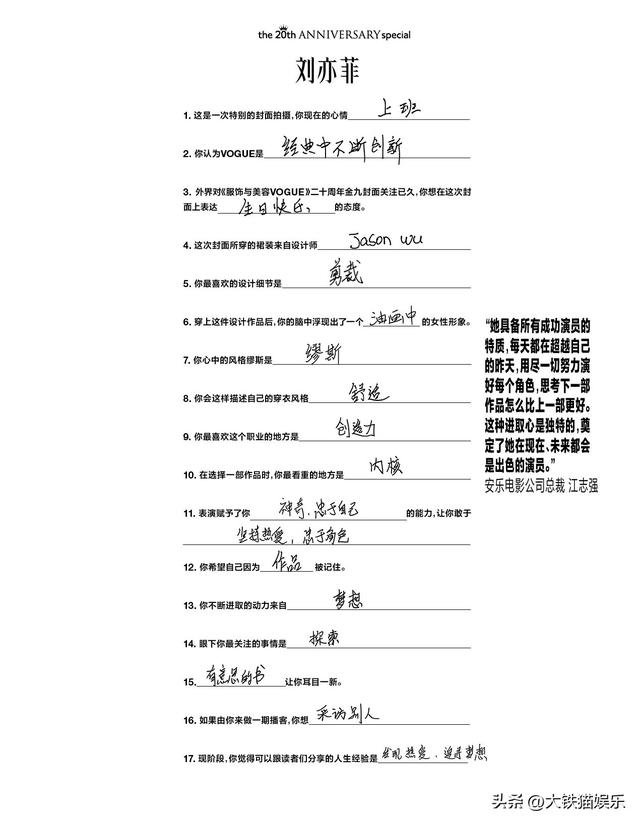 the 20th ANNIVERSARY special
刘亦菲
1. 这是一次特别的封面拍摄,你现在的心情 上班
2. 你认为VOGUE是 经典中不断创新
3. 外界对《服饰与美容VOGUE》二十周年金九封面关注已久,你想在这次封
面上表达 生日快乐 的态度。
4. 这次封面所穿的裙装来自设计师 Jason wu
5. 你最喜欢的设计细节是 剪裁
6. 穿上这件设计作品后,你的脑中浮现出了一个 油画中 的女性形象。
7. 你心中的风格缪斯是 缪斯
8. 你会这样描述自己的穿衣风格 舒适
9. 你最喜欢这个职业的地方是 创造力
10. 在选择一部作品时,你最看重的地方是 内核
11. 表演赋予了你 神奇、忠于自己 的能力,让你敢于
坚持热爱,忠于角色
12. 你希望自己因为 作品 被记住。
13. 你不断进取的动力来自 梦想
14. 眼下你最关注的事情是 探索
15. 有意思的书 让你耳目一新。
16. 如果由你来做一期播客,你想 采访别人
17. 现阶段,你觉得可以跟读者们分享的人生经验是 发现热爱,追寻梦想
“她具备所有成功演员的
特质,每天都在超越自己
的昨天,用尽一切努力演
好每个角色,思考下一部
作品怎么比上一部更好。
这种进取心是独特的,奠
定了她在现在、未来都会
是出色的演员。”
安乐电影公司总裁 江志强
头条 @大铁猫娱乐